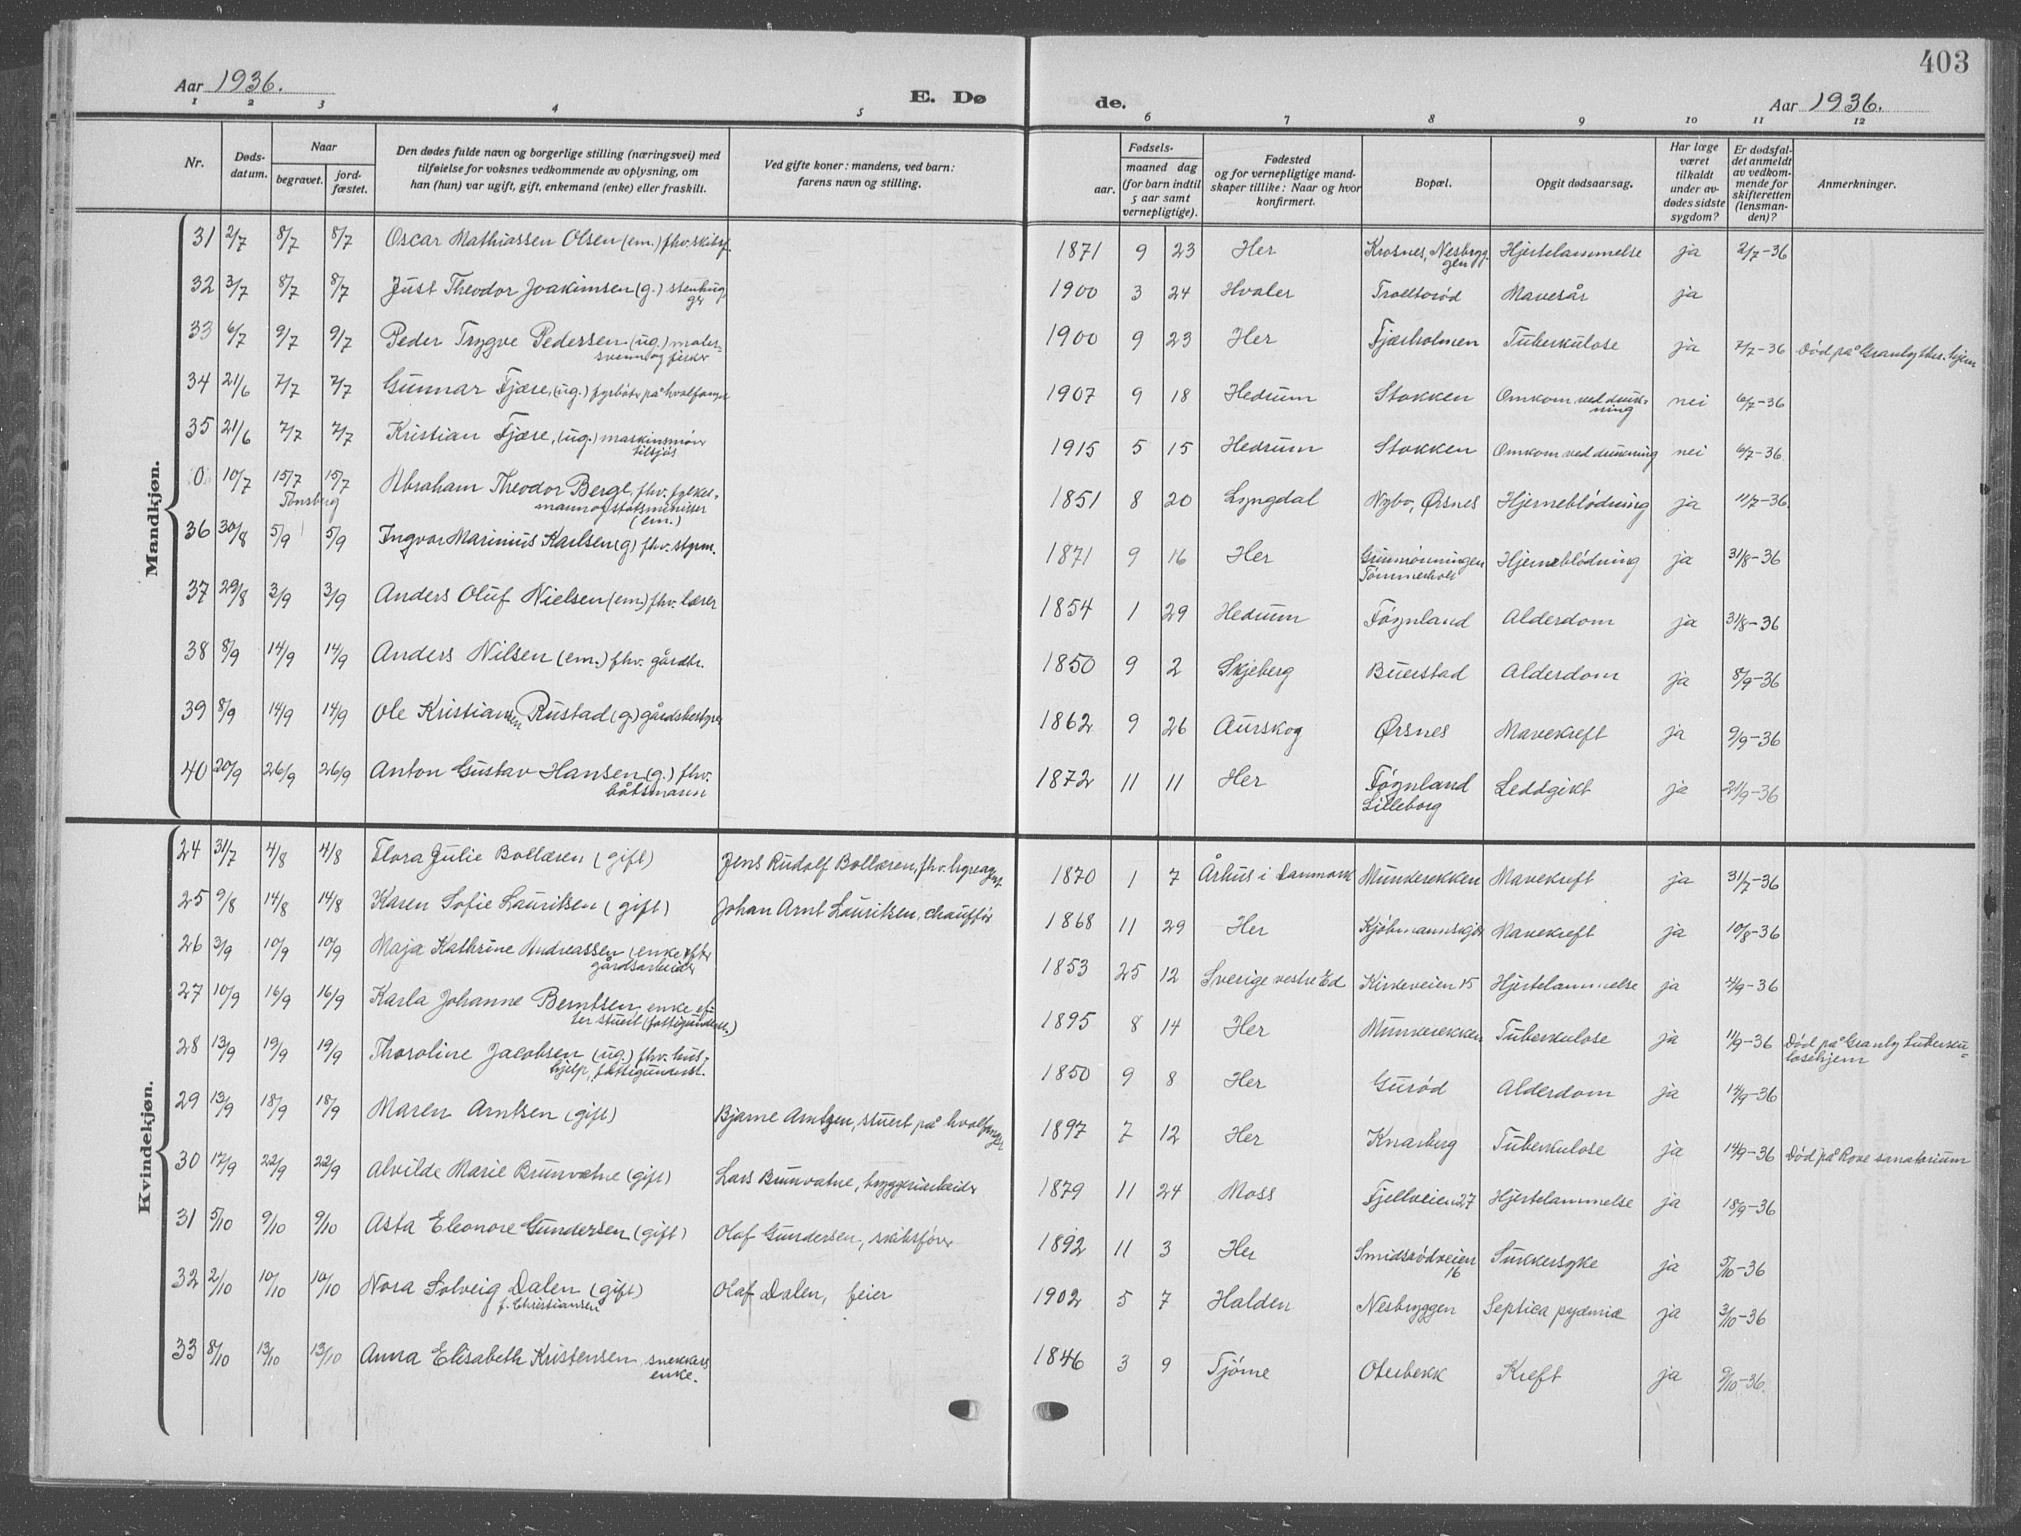 403
Aar 1936.
E. Dø
de.
Aar 1936.
1 2 3 4 5 6 7 8 9 10 11 12
Nr.
Dødsdatum.
Naar
begravet.
jordfæstet.
Den dødes fulde navn og borgerlige stilling (næringsvei) med
tilføielse for voksnes vedkommende av oplysning, om
han (hun) var ugift, gift, enkemand (enke) eller fraskilt.
Ved gifte koner: mandens, ved barn:
farens navn og stilling.
Fødsels-
aar.
maaned dag
(for barn indtil
5 aar samt
vernepligtige).
Fødested
og for vernepligtige mand-
skaper tillike: Naar og hvor
konfirmert.
Bopæl.
Opgit dødsaarsag.
Har læge
været
tilkaldt
under av-
dødes sidste
sygdom?
Er dødsfal-
det anmeldt
av vedkom-
mende for
skifteretten
(lensman-
den)?
Anmerkninger.
Mandkjøn.
31 2/7 8/7 8/7 Oscar Mathiassen Olsen (em.) fhv. skibsf. 1871 9 23 Her Krosnes, Nesbryggen Hjertelammelse ja 2/7-36
32 3/7 8/7 8/7 Just Theodor Joakimsen (g.) stenhugger 1900 3 24 Hvaler Trolltorød Mavesår ja
33 6/7 9/7 9/7 Peder Trygve Pedersen (ug.) malersvenn og fisker 1900 9 23 Her Fjærholmen Tuberkulose ja 7/7-36 Død på Granly tbs. hjem
34 21/6 7/7 7/7 Gunnar Fjære, (ug.) fyrbøter på hvalfanger 1907 9 18 Hedrum Stokken Omkom ved drukning nei 6/7-36
35 21/6 7/7 7/7 Kristian Fjære, (ug.) maskinsmører tilsjøs 1915 5 15 Hedrum Stokken Omkom ved drukning nei 6/7-36
0 10/7 15/7 Tønsberg 15/7 Abraham Theodor Berge, fhv. fylkesmann og statsminister (em.) 1851 8 20 Lyngdal Nybo, Ørsnes Hjerneblødning ja 11/7-36
36 30/8 5/9 5/9 Ingvar Marinius Karlsen (g) fhv. styrm. 1871 9 16 Her Grimmønningen Tømmerholt Hjerneblødning ja 31/8-36
37 29/8 3/9 3/9 Anders Oluf Nielsen (em.) fhv. lærer 1854 1 29 Hedrum Føynland Alderdom ja 31/8-36
38 8/9 14/9 14/9 Anders Nilsen (em.) fhv. gårdbr. 1850 9 2 Skjeberg Buerstad Alderdom ja 8/9-36
39 8/9 14/9 14/9 Ole Kristiansen Rustad (g) gårdsbestyrer 1862 9 26 Aurskog Ørsnes Mavekreft ja 9/9-36
40 20/9 26/9 26/9 Anton Gustav Hansen (g.) fhv. båtsmann 1872 11 11 Her Føynland Lilleborg Leddgikt ja 21/9-36
Kvindekjøn.
24 31/7 4/8 4/8 Flora Julie Bollæren (gift) Jens Rudolf Bollæren, fhv. hyreagent 1870 1 7 Århus i Danmark Munkerekken Mavekreft ja 31/7-36
25 9/8 14/8 14/8 Karen Sofie Lauritsen (gift) Johan Arnt Lauritsen, chauffør 1868 11 29 Her Kjøbmannskjær Mavekreft ja 10/8-36
26 3/9 10/9 10/9 Maja Kathrine Andreassen (enke efter gårdsarbeider 1853 25 12 Sverige vestre Ed Kirkeveien 15 Hjertelammelse ja 4/9-36
27 10/9 16/9 16/9 Karla Johanne Berntsen, enke efter stuert (fattigunderst.) 1895 8 14 Her Munkerekken Tuberkulose ja 11/9-36 Død på Granly tuberkulosehjem
28 13/9 19/9 19/9 Thoroline Jacobsen (ug.) fhv. hushjelp, fattigunderst. 1850 9 8 Her Gurød Alderdom ja 14/9-36
29 13/9 18/9 18/9 Maren Arntsen (gift) Bjarne Arntzen, stuert på hvalfanger 1897 7 12 Her Knarberg Tuberkulose ja 14/9-36 Død på Rove sanatorium
30 17/9 22/9 22/9 Alvilde Marie Brunvatne (gift) Lars Brunvatne, bryggeriarbeider 1879 11 24 Moss Fjellveien 27 Hjertelammelse ja 18/9-36
31 5/10 9/10 9/10 Asta Eleonore Gundersen (gift) Olaf Gundersen, skibsfører 1892 11 3 Her Smidsrødveien 16 Sukkersyke ja 5/10-36
32 2/10 10/10 10/10 Nora Solveig Dalen (gift) f. Christiansen Olaf Dalen, feier 1902 5 7 Halden Nesbryggen Septica pyæmiæ ja 3/10-36
33 8/10 13/10 13/10 Anna Elisabeth Kristensen snekkers enke. 1846 3 9 Tjøme Oterbekk Kreft ja 9/10-36.